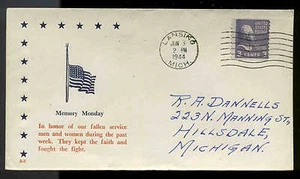 LANSING
JUN 5
2 PM
1944
MICH.
3 CENTS 3
Memory Monday
In honor of our fallen service
men and women during the past
week. They kept the faith and
fought the fight.
R. A. DANNELLS
223 N. MANNING ST.,
HILLSDALE,
MICHIGAN.